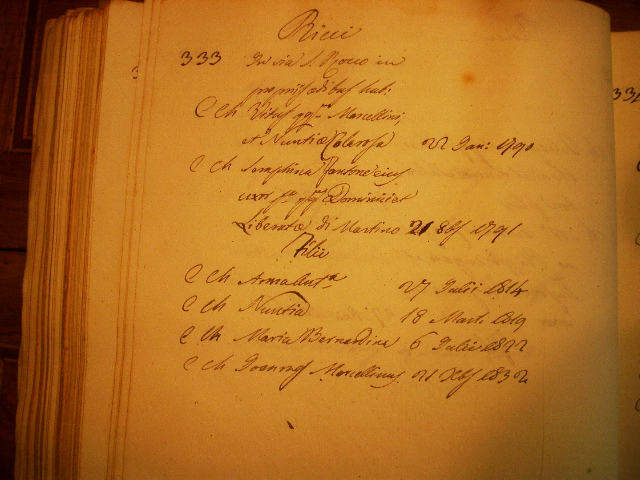 Ricci
333 In via S. Rocco in
propriis ædibus hab:
C Ch Vitus qm Marcellini,
et Nuntiæ Colarosa 22 Jan: 1790
C Ch Seraphina Fantone ejus
uxor fa qm Dominici et
Liberatæ di Martino 21 8bs 1791
Filii
C Ch Amalasta 27 Julii 1814
C Ch Nuntia 18 Mart. 1819
C Ch Maria Bernardina 6 Julii 1822
C Ch Joannes Marcellinus 21 Xbs 1832
33